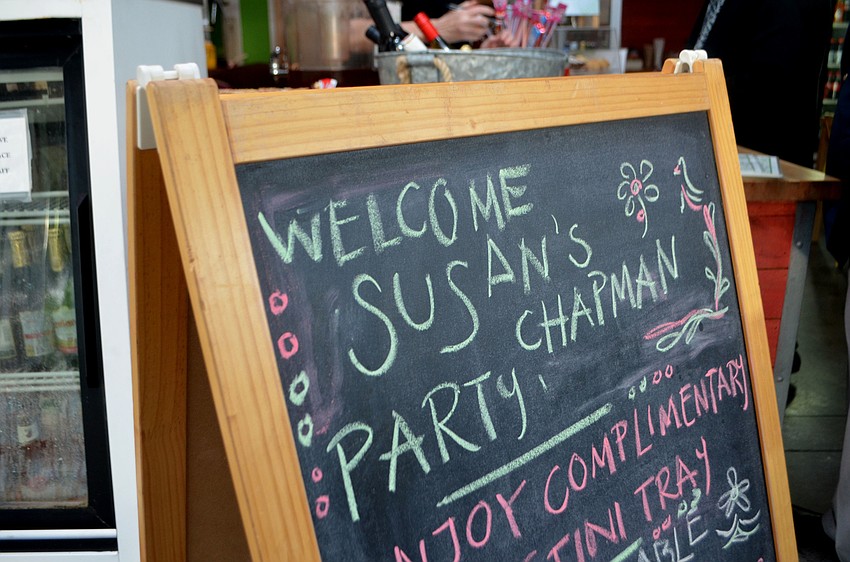 WELCOME
SUSAN'S
CHAPMAN
PARTY,
ENJOY COMPLIMENTARY
TINI TRAY
ABLE